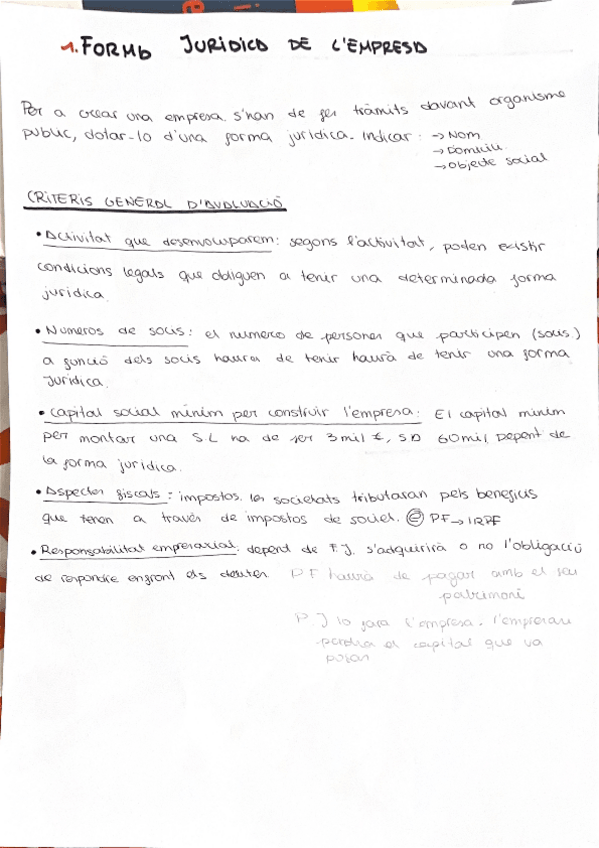 1. FORMA JURÍDICA DE L'EMPRESA
Per a crear una empresa s'han de fer tràmits davant organisme
públic, dotar-lo d'una forma jurídica. Indicar: → Nom
→ Domicili
→ Objecte social
CRITERIS GENERAL D'AVALUACIÓ
• Activitat que desenvoluparem: segons l'activitat, poden existir
condicions legals que obliguen a tenir una determinada forma
jurídica.
• Números de socis: el número de persones que participen (socis)
a funció dels socis haurà de tenir haurà de tenir una forma
Jurídica.
• Capital social mínim per construir l'empresa: El capital mínim
per montar una S.L ha de ser 3 mil €, SA 60 mil Depent de
la forma jurídica.
• Aspectes fiscals: impostos. les societats tributaran pels beneficis
que tenen a través de impostos de societ. PF → IRPF
• Responsabilitat empresarial: depend de F.J. s'adquirirà o no l'obligació
de respondre enfront els deutes. PF haurà de pagar amb el seu
patrimoni
P.J lo farà l'empresa. l'empresari
perdrà el capital que va
posar